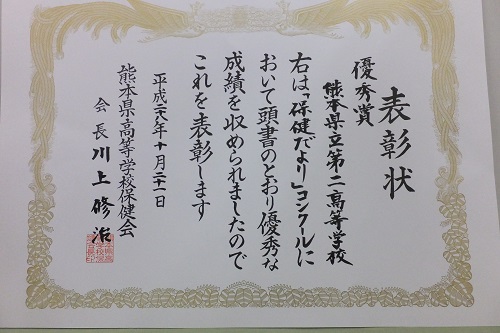 表彰状
優秀賞
熊本県立第二高等学校
右は「保健だより」コンクールに
おいて頭書のとおり優秀な
成績を収められましたので
これを表彰します
平成二八年十月二十一日
熊本県高等学校保健会
会長 川上修治